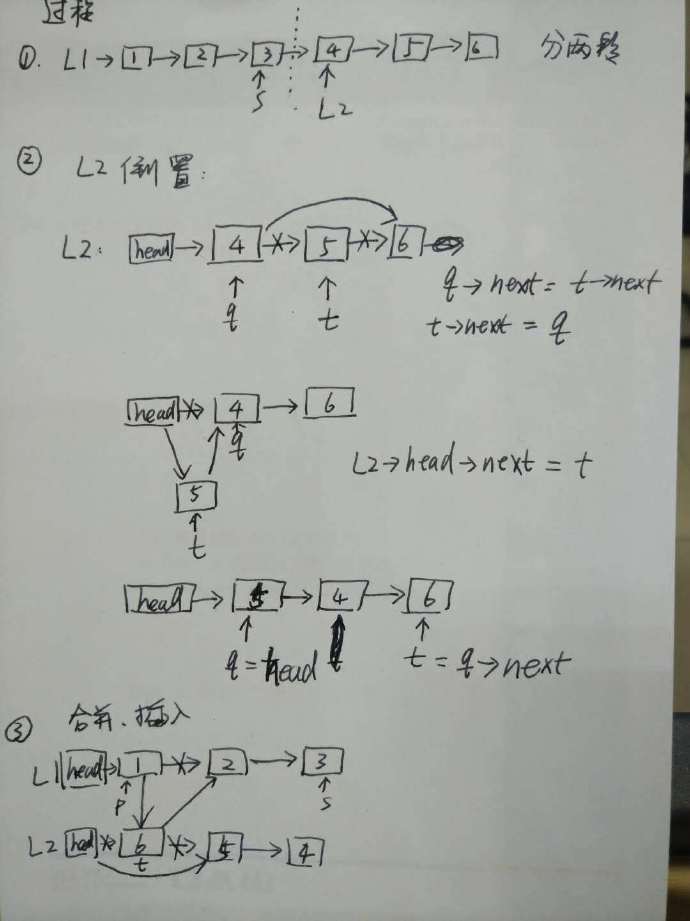 过程
①. L1→ 1 → 2 → 3 → 4 → 5 → 6 分两段
S L2
② L2 倒置:
L2: head → 4 → 5 → 6
q→next = t→next
q t
t→next = q
head → 4 → 6
q
L2→head→next = t
5
t
head → 5 → 4 → 6
q = head t = q→next
③ 合并、插入
L1 head → 1 → 2 → 3
P S
L2 head → 6 → 5 → 4
t